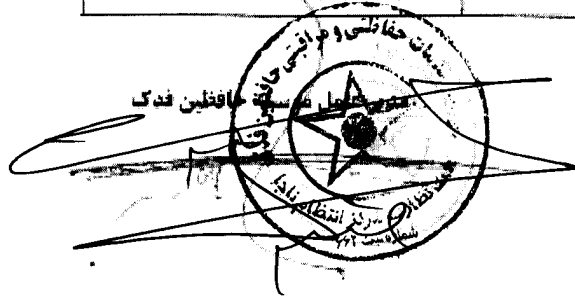 خدمات حفاظتی و مراقبتی حافظین فدک
مدیر عامل موسسه حافظین فدک
تحت نظارت مرکز انتظام ناجا
شماره ثبت ۶۶۲